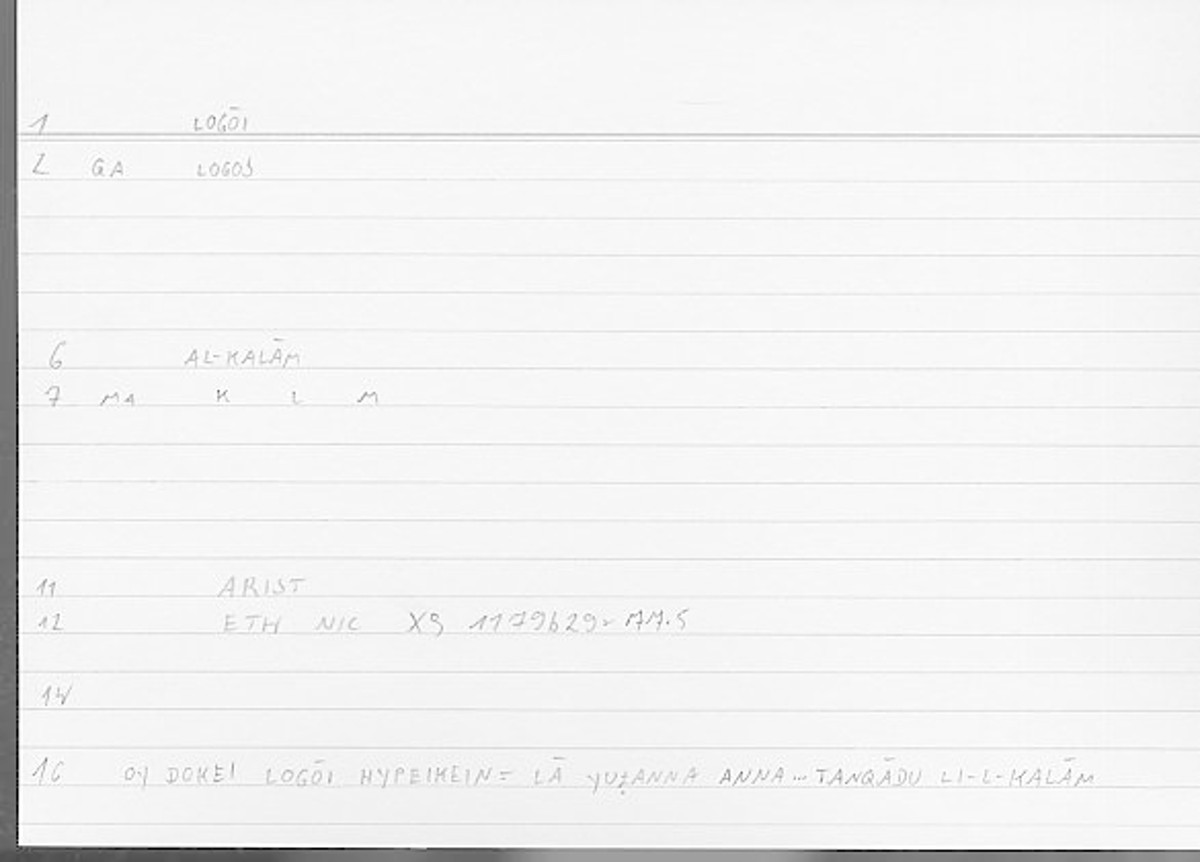 1 LOGŌI
2 GA LOGOS
6 AL-KALĀM
7 MA K L M
11 ARIST
12 ETH NIC X9 1179b29 77.5
14
16 OY DOKEI LOGŌI HYPEIKEIN = LĀ YUẒANNA ANNA... TANQĀDU LI-L-KALĀM